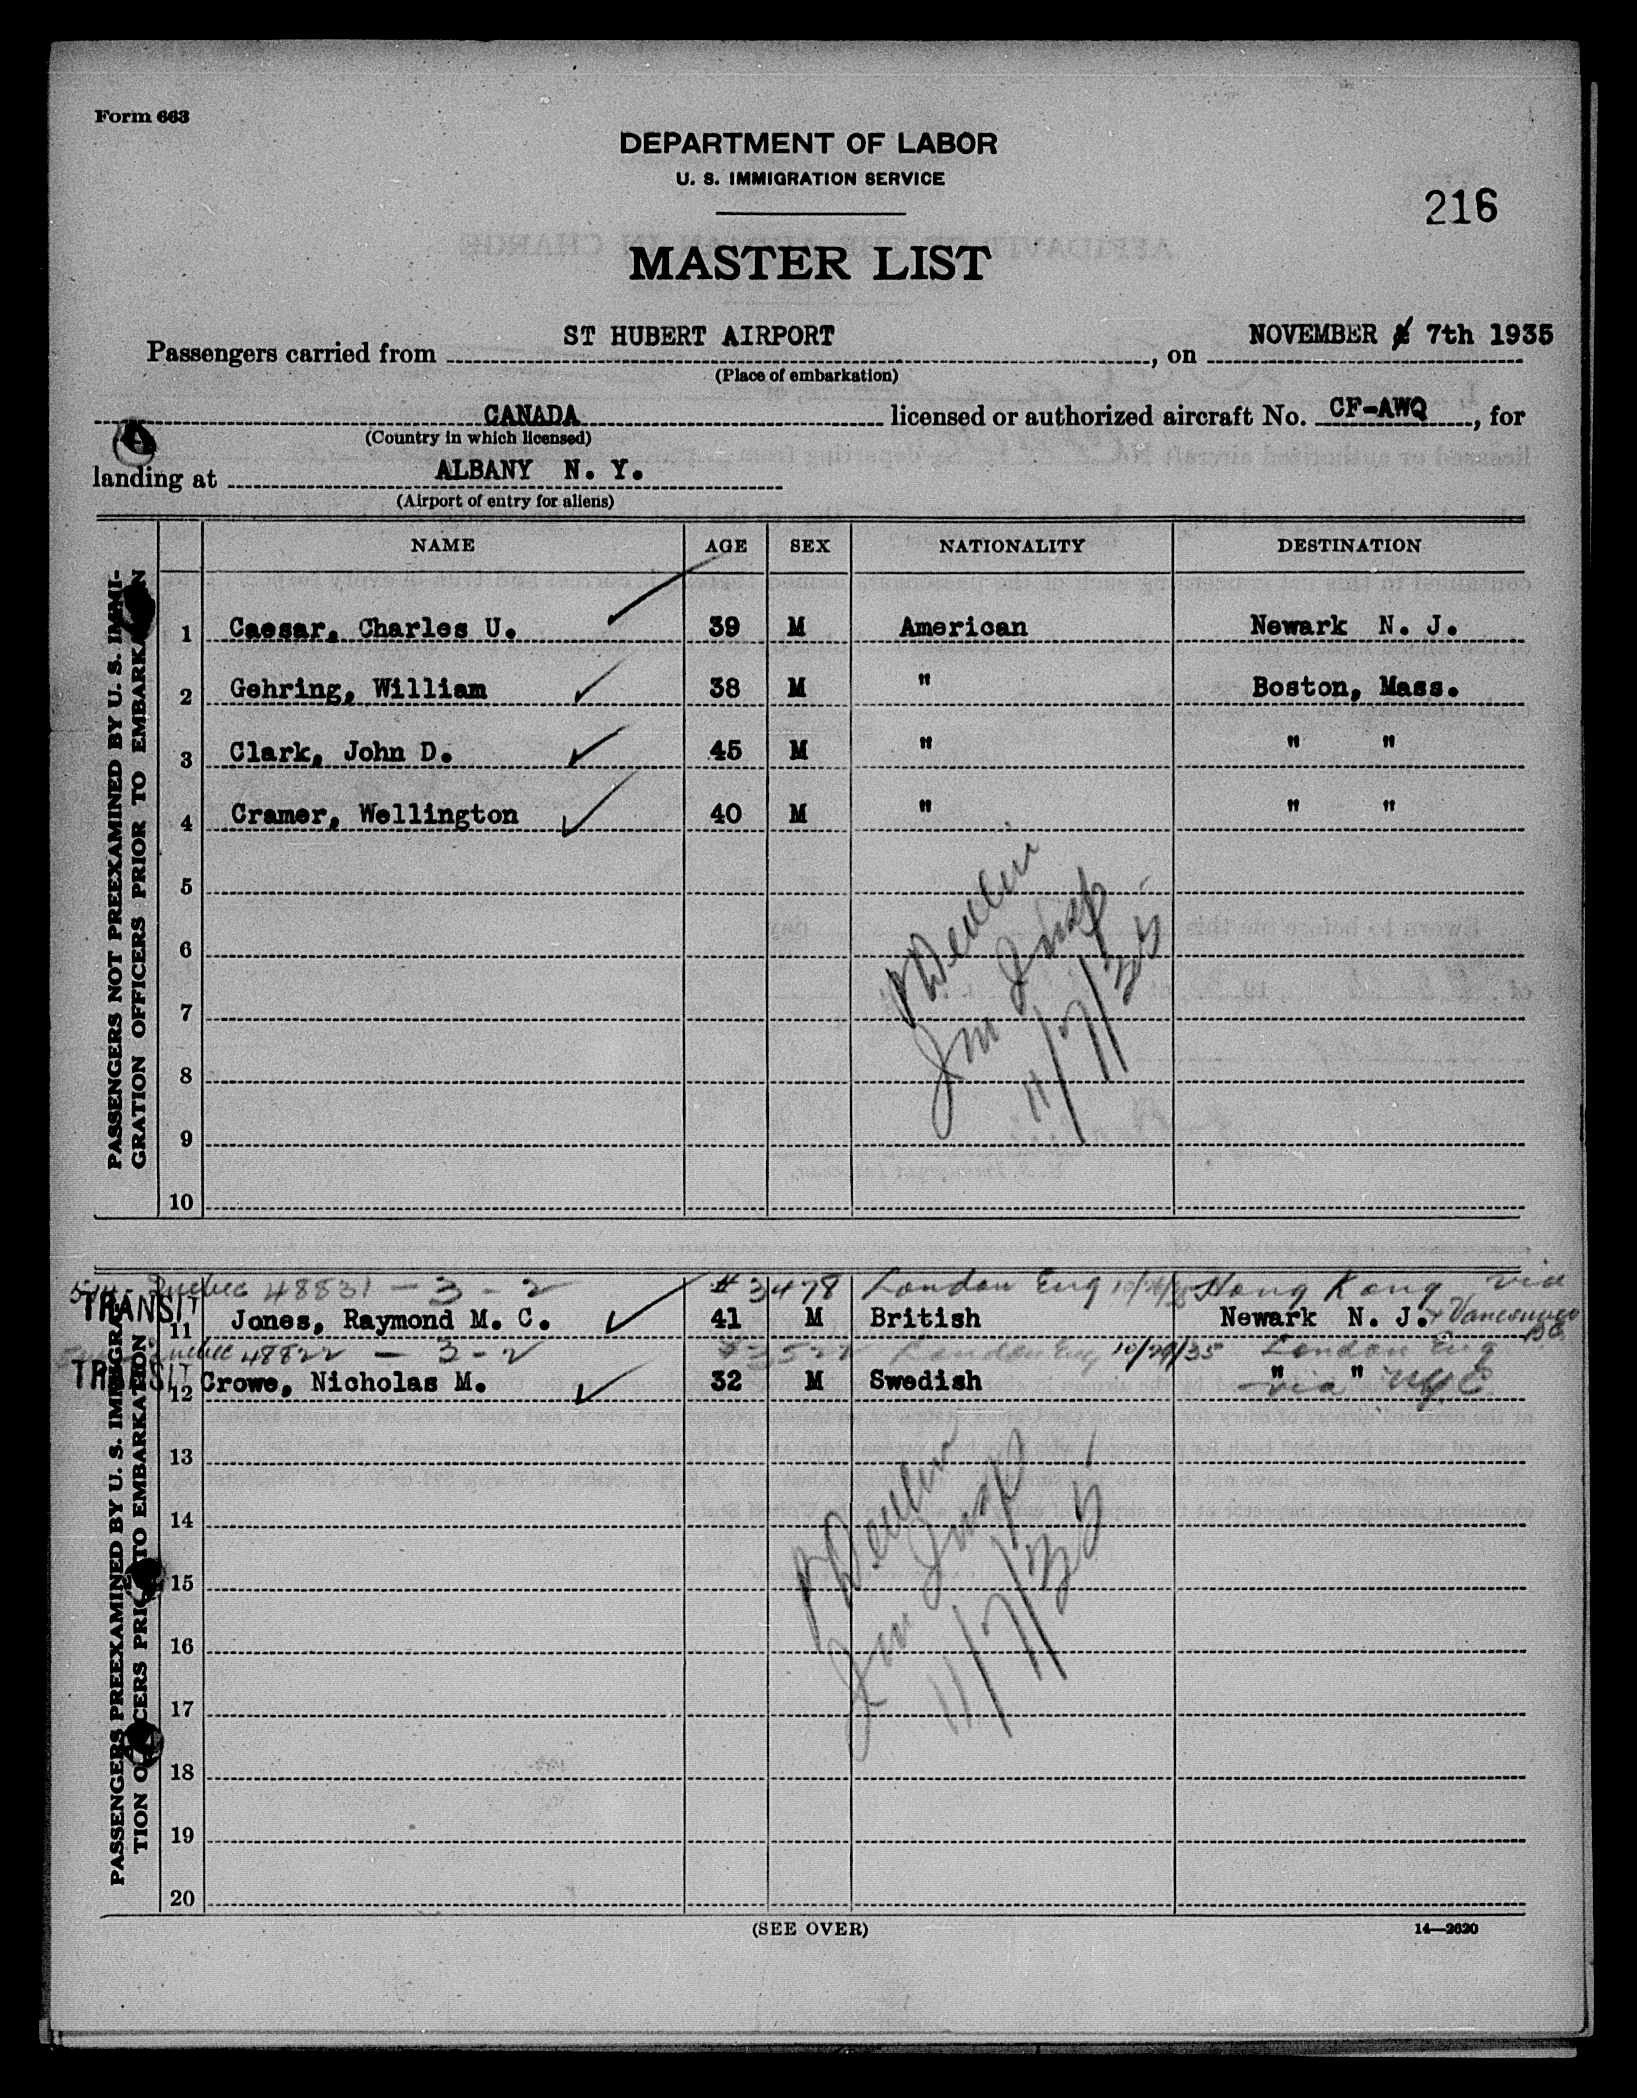 Form 663
DEPARTMENT OF LABOR
U. S. IMMIGRATION SERVICE
216
MASTER LIST
Passengers carried from ST HUBERT AIRPORT, on NOVEMBER 7th 1935
(Place of embarkation)
CANADA licensed or authorized aircraft No. CF-AWQ, for
(Country in which licensed)
landing at ALBANY N. Y.
(Airport of entry for aliens)
NAME AGE SEX NATIONALITY DESTINATION
PASSENGERS NOT PREEXAMINED BY U. S. IMMI-
GRATION OFFICERS PRIOR TO EMBARKATION
1 Caesar, Charles U. 39 M American Newark N. J.
2 Gehring, William 38 M " Boston, Mass.
3 Clark, John D. 45 M " " "
4 Cramer, Wellington 40 M " " "
5
6
7
8
9
10
Devlin
Imm Insp
11/7/35
PASSENGERS PREEXAMINED BY U. S. IMMIGRA-
TION OFFICERS PRIOR TO EMBARKATION
Quebec 48831 - 3 - 2 #3478 London Eng Hong Kong via
TRANSIT 11 Jones, Raymond M. C. 41 M British Newark N. J. + Vancouver BC
Quebec 48822 - 3 - 2 #3522 London Eng 10/29/35 London Eng
TRANSIT 12 Crowe, Nicholas M. 32 M Swedish " " via NYC
13
14
15
16
17
18
19
20
Devlin
Imm Insp
11/7/35
(SEE OVER)
14—2620